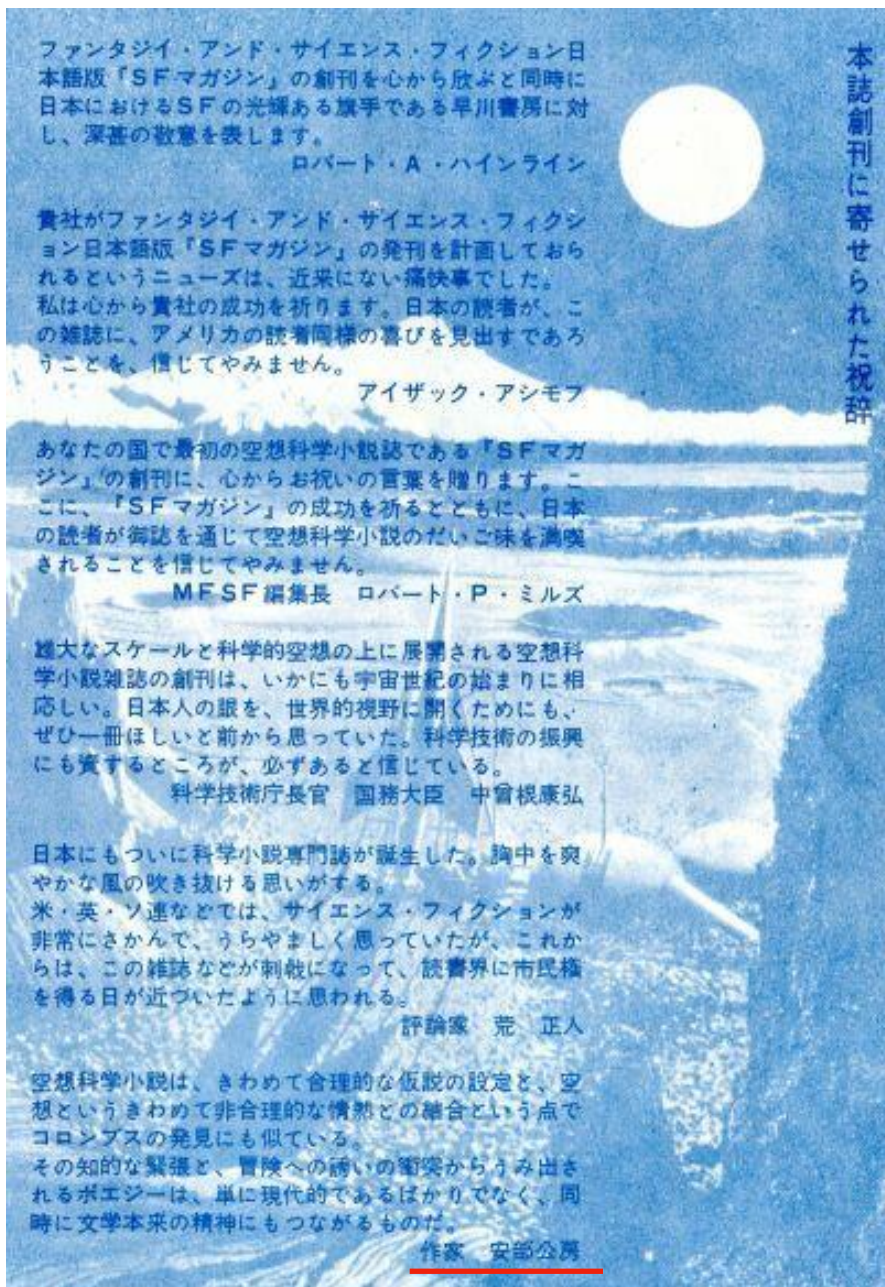 本誌創刊に寄せられた祝辞
ファンタジイ・アンド・サイエンス・フィクション日
本語版『SFマガジン』の創刊を心から欣ぶと同時に
日本におけるSFの光輝ある旗手である早川書房に対
し、深甚の敬意を表します。
ロバート・A・ハインライン
貴社がファンタジイ・アンド・サイエンス・フィクシ
ョン日本語版『SFマガジン』の発刊を計画しておら
れるというニューズは、近来にない痛快事でした。
私は心から貴社の成功を祈ります。日本の読者が、こ
の雑誌に、アメリカの読者同様の喜びを見出すであろ
うことを、信じてやみません。
アイザック・アシモフ
あなたの国で最初の空想科学小説誌である『SFマガ
ジン』の創刊に、心からお祝いの言葉を贈ります。こ
こに、『SFマガジン』の成功を祈るとともに、日本
の読者が御誌を通じて空想科学小説のだいご味を満喫
されることを信じてやみません。
MFSF編集長 ロバート・P・ミルズ
雄大なスケールと科学的空想の上に展開される空想科
学小説雑誌の創刊は、いかにも宇宙世紀の始まりに相
応しい。日本人の眼を、世界的視野に開くためにも、
ぜひ一冊ほしいと前から思っていた。科学技術の振興
にも資するところが、必ずあると信じている。
科学技術庁長官 国務大臣 中曾根康弘
日本にもついに科学小説専門誌が誕生した。胸中を爽
やかな風の吹き抜ける思いがする。
米・英・ソ連などでは、サイエンス・フィクションが
非常にさかんで、うらやましく思っていたが、これか
らは、この雑誌などが刺戟になって、読書界に市民権
を得る日が近づいたように思われる。
評論家 荒 正人
空想科学小説は、きわめて合理的な仮説の設定と、空
想というきわめて非合理的な情熱との結合という点で
コロンブスの発見にも似ている。
その知的な緊張と、冒険への誘いの衝突からうみ出さ
れるポエジーは、単に現代的であるばかりでなく、同
時に文学本来の精神にもつながるものだ。
作家 安部公房